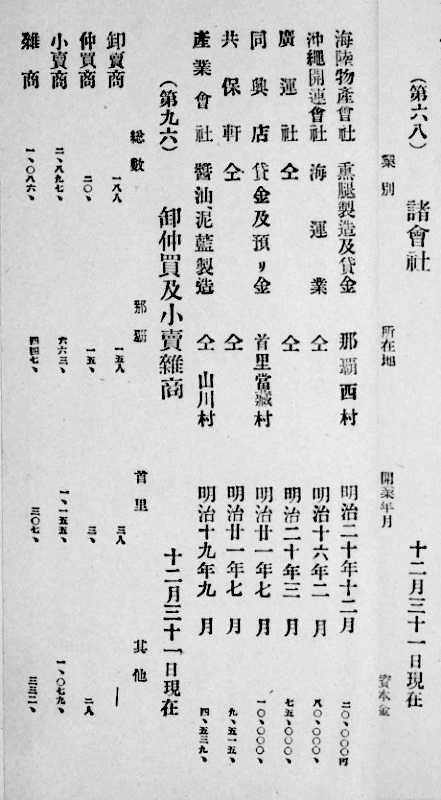 (第六八) 諸會社 十二月三十一日現在
業別 所在地 開業年月 資本金
海陸物產會社 熏腿製造及貸金 那覇西村 明治二十年十二月 二〇、〇〇〇円
沖繩開運會社 海運業 仝 明治十六年二月 八〇、〇〇〇、
廣運社 仝 仝 明治二十年三月 七五、〇〇〇、
同興店 貸金及預リ金 首里當藏村 明治廿一年七月 一〇、〇〇〇、
共保軒 仝 仝 明治廿一年七月 九、五一五、
產業會社 醬油、泥藍製造 仝山川村 明治十九年九月 四、五三九、
(第九六) 卸仲買及小賣雜商 十二月三十一日現在
総數 那覇 首里 其他
卸賣商 一八人 一五人 三人 ―
仲買商 二〇、 一五、 三、 二人
小賣商 二、八九七、 六六三、 一、一五五、 一、〇七九、
雜商 一、〇八六、 四四七、 三〇七、 三三二、